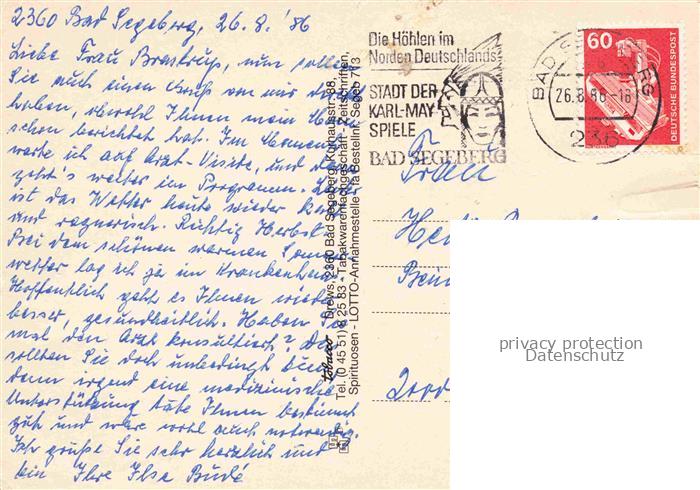 2360 Bad Segeberg, 26.8.'86
Liebe Frau Brostrup, nun sollen
Sie auch einen Gruß von mir
haben, obwohl Ihnen mein
schon berichtet hat. Im Moment
warte ich auf Arzt-Visite, und
geht's weiter im Programm.
ist das Wetter heute wieder
und regnerisch. Richtig Herbst
Bei dem schönen warmen
wetter lag ich ja im Krankenhaus
Hoffentlich geht es Ihnen wieder
besser, gesundheitlich. Haben Sie
mal den Arzt konsultiert? Das
sollten Sie doch unbedingt tun,
denn irgend eine medizinische
Unterstützung täte Ihnen bestimmt
gut und wäre wohl auch notwendig.
Ich grüße Sie sehr herzlich und
bin Ihre Ilse Budé
tabacco Drews, 2360 Bad Segeberg, Kurhausstr. 88,
Tel. (0 45 51) 8 25 83 - Tabakwarenfachgeschäft - Zeitschriften,
Spirituosen - LOTTO-Annahmestelle - fa Bestellnr. Segeb 713
Die Höhlen im
Norden Deutschlands
STADT DER
KARL-MAY-
SPIELE
BAD SEGEBERG
BAD SEGEBERG
26.8.86-16
236
60
DEUTSCHE BUNDESPOST
Frau
privacy protection
Datenschutz